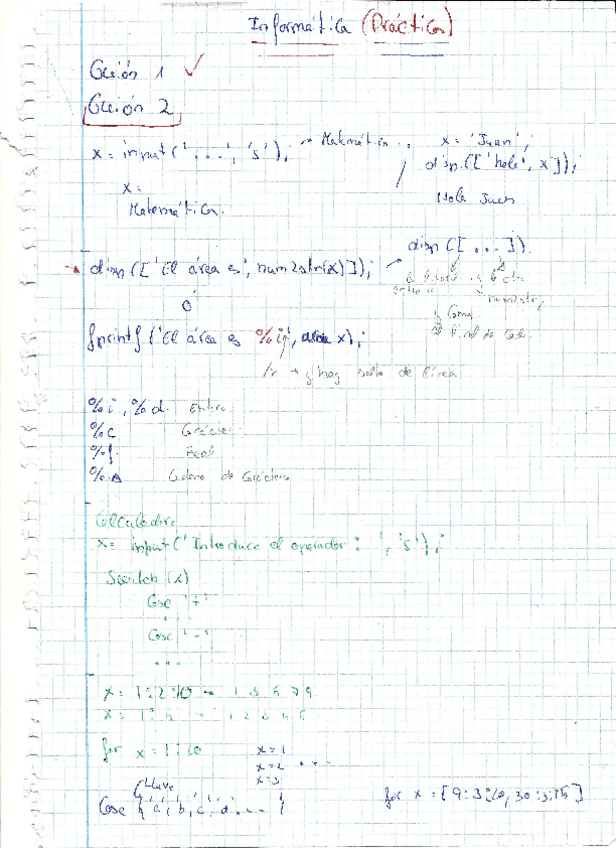 Informática (Práctica)
Guión 1 ✓
Guión 2
x = input('...', 's'); → Matemática
x = 'Juan';
disp(['hola', x]);
x =
Matemática.
Hola Juan
disp([...]).
→ disp(['El área es', num2str(x)]);
ó
fprintf('El área es %i', x);
num2str,
Coma
→ y hay salto de línea
%i, %d. Entero
%c Carácter
%f Real
%s Cadena de Carácteres
Calculadora
x = input('Introduce el operador: ', 's');
Switch (x)
Case '+'
Case '-'
...
x = 1:2:10 → 1 3 5 7 9
x = 1:5 → 1 2 3 4 5
for x = 1:10
x = 1
x = 2 ...
x = 3
Llave
Case {'a', 'b', 'c', 'd' ... }
for x = [9:3:20, 30:3:75]